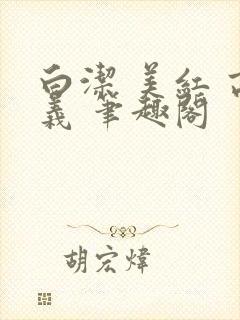 白潔 美紅 高
義 筆趣閣
胡宏煒